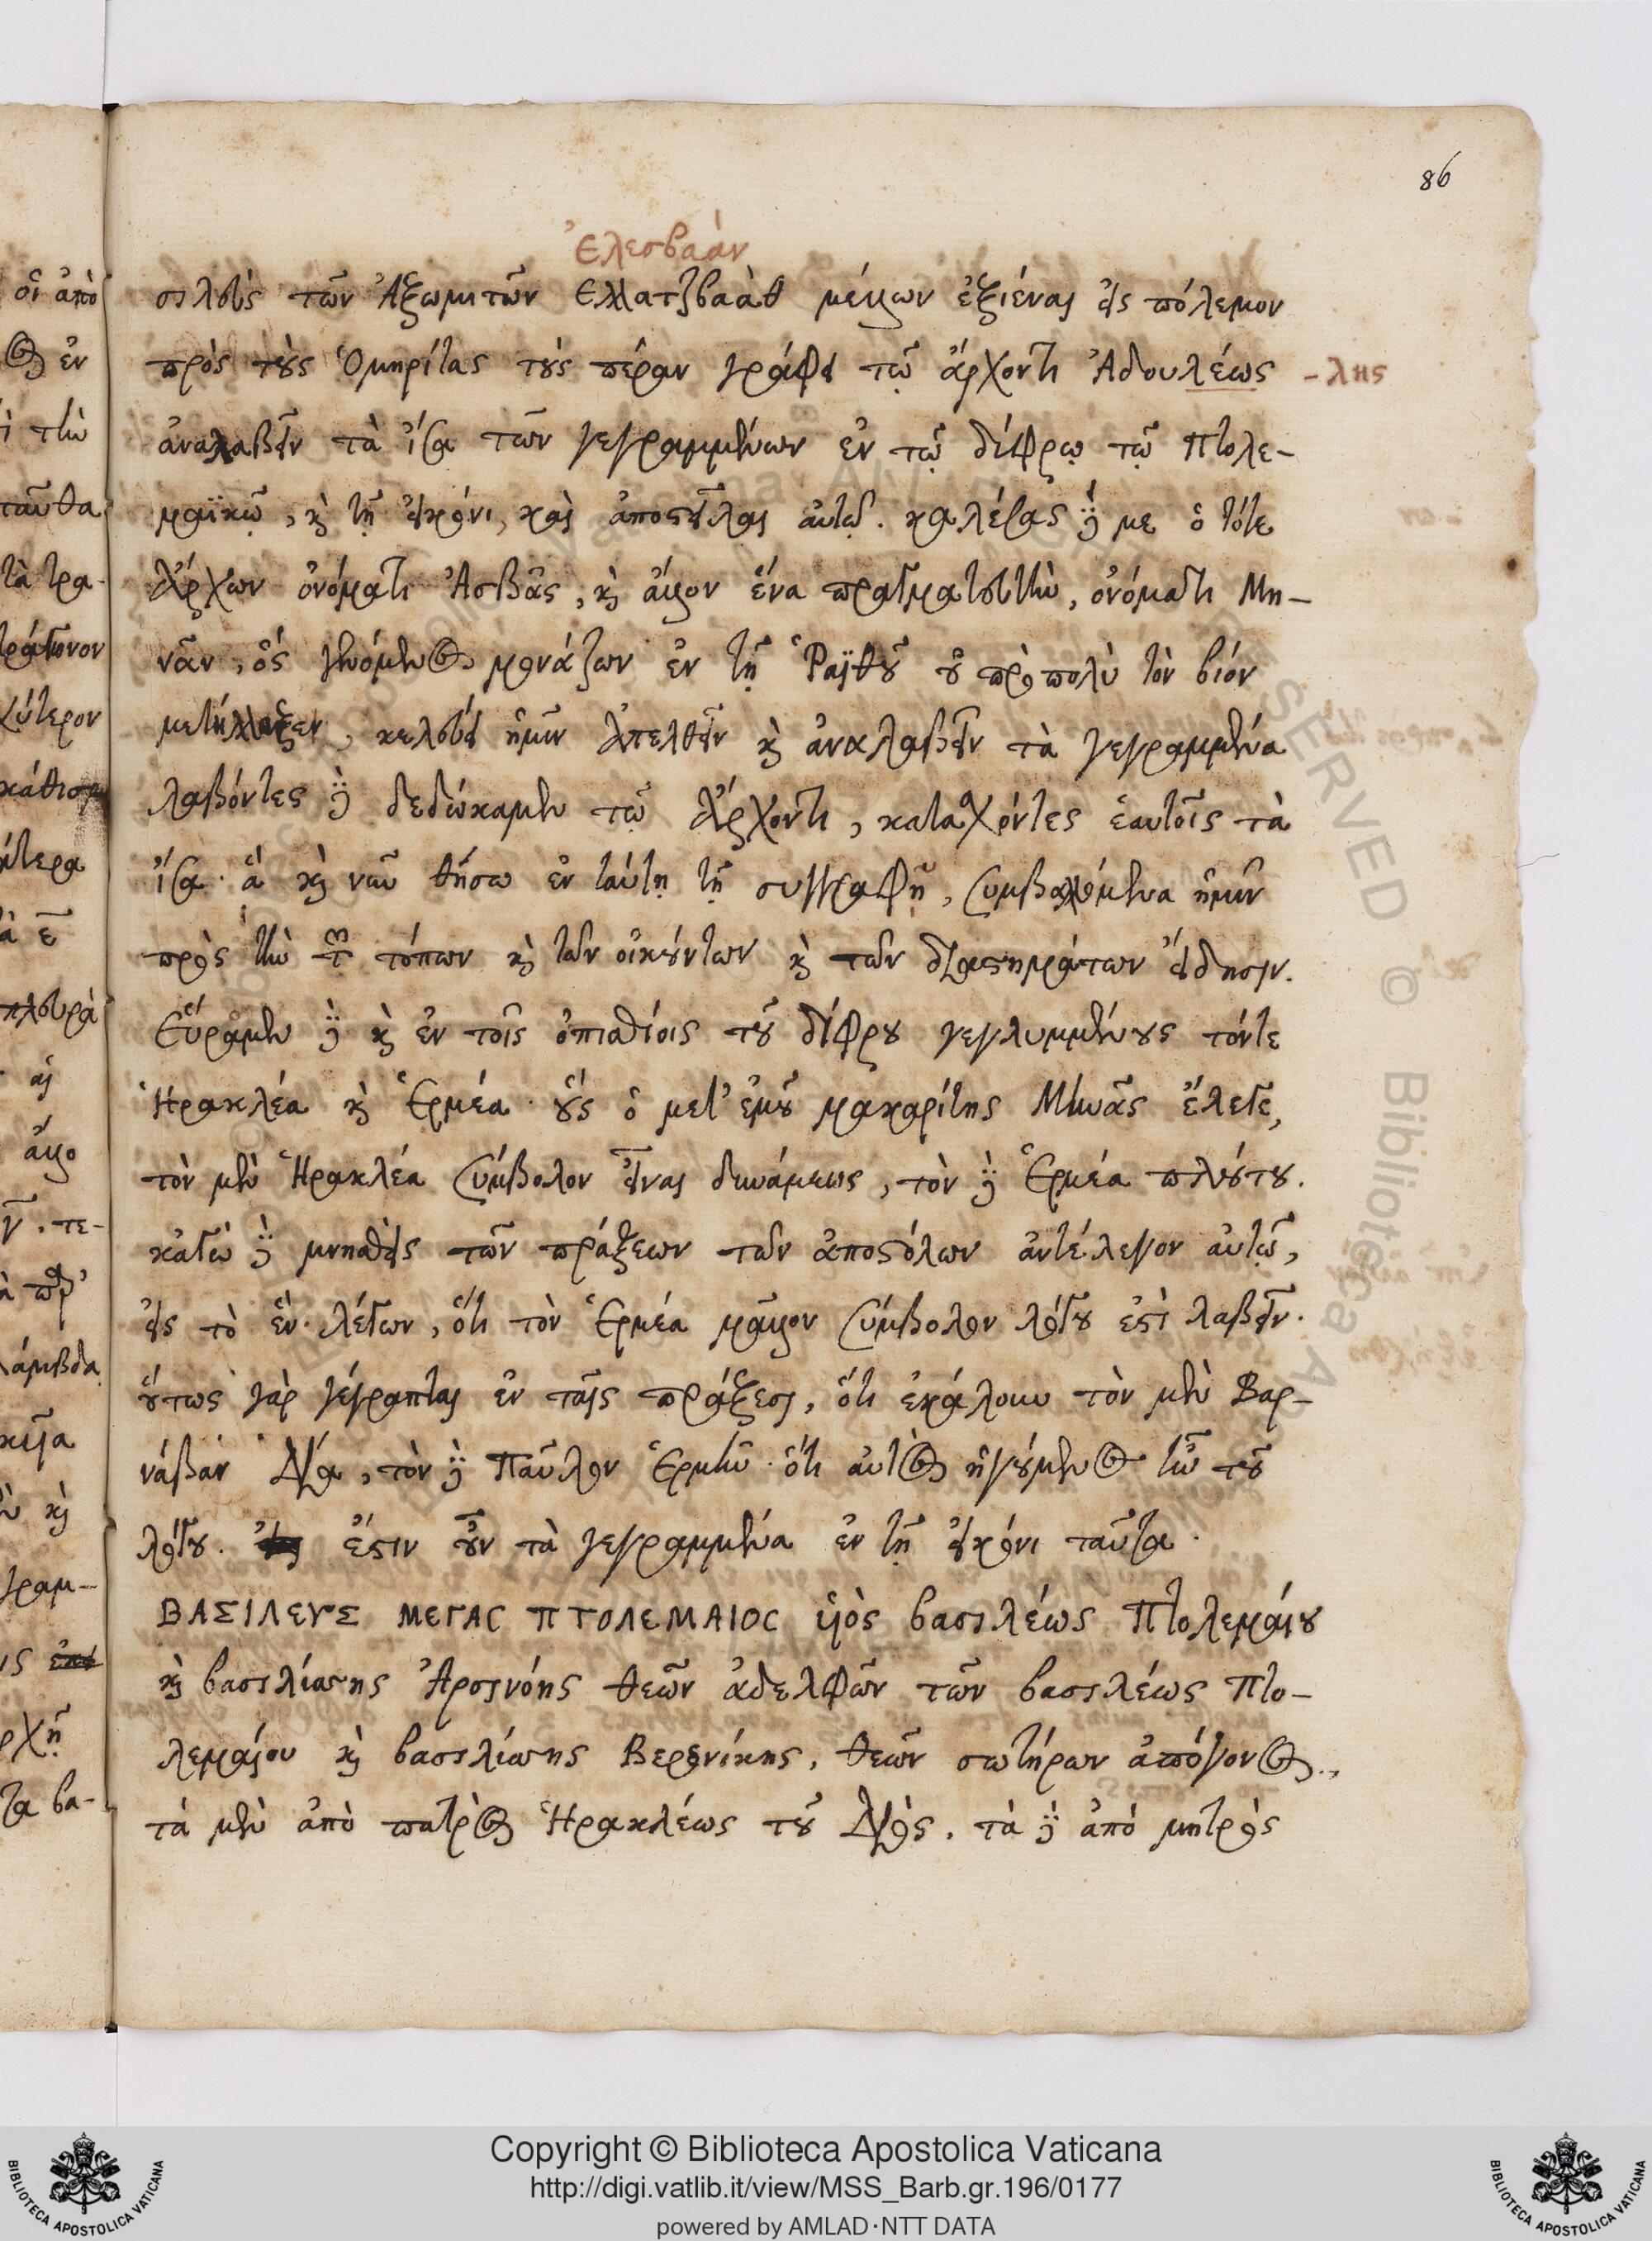 86
Ἐλεσβαὰν
σιλεὺς τῶν Ἀξωμιτῶν Ελλατζβαὰθ μέλλων ἐξιέναι εἰς πόλεμον
πρὸς τοὺς Ὁμηρίτας τοὺς πέραν γράφει τῷ ἄρχοντι Ἀδουλέως -λης
ἀναλαβεῖν τὰ ἴσα τῶν γεγραμμένων ἐν τῷ δίφρῳ τῷ Πτολε-
μαϊκῷ, καὶ τῇ εἰκόνι, καὶ ἀποστεῖλαι αὐτῷ. καλέσας δέ με ὁ τότε
ἄρχων ὀνόματι Ἀσβᾶς, καὶ ἄλλον ἕνα πραγματευτὴν, ὀνόματι Μη-
νᾶν, ὅς γενόμενος μονάζων ἐν τῇ Ῥαϊθοῦ οὐ πρὸ πολὺ τὸν βίον
μετήλλαξεν, κελεύει ἡμῖν ἀπελθεῖν καὶ ἀναλαβεῖν τὰ γεγραμμένα
λαβόντες δὲ δεδώκαμεν τῷ ἄρχοντι, κατασχόντες ἑαυτοῖς τὰ
ἴσα· ἃ καὶ νῦν θήσω ἐν ταύτῃ τῇ συγγραφῇ, συμβαλλόμενα ἡμῖν
πρὸς τὴν τῶν τόπων καὶ τῶν οἰκούντων καὶ τῶν διαστημάτων εἴδησιν.
Εὕραμεν δὲ καὶ ἐν τοῖς ὀπισθίοις τοῦ δίφρου γεγλυμμένους τόντε
Ἡρακλέα καὶ Ἑρμέα· οὓς ὁ μετ' ἐμοῦ μακαρίτης Μηνᾶς ἔλεγε,
τὸν μὲν Ἡρακλέα σύμβολον εἶναι δυνάμεως, τὸν δὲ Ἑρμέα πλούτου.
κἀγὼ δὲ μνησθεὶς τῶν πράξεων τῶν ἀποστόλων ἀντέλεγον αὐτῷ,
εἰς τὸ ἓν· λέγων, ὅτι τὸν Ἑρμέα μᾶλλον σύμβολον λόγου ἐστὶ λαβεῖν·
οὕτως γὰρ γέγραπται ἐν ταῖς πράξεσι, ὅτι ἐκάλουν τὸν μὲν Βαρ-
νάβαν Δία, τὸν δὲ Παῦλον Ἑρμῆν· ὅτι αὐτὸς ἡγούμενος ἦν τοῦ
λόγου. ἔστιν οὖν τὰ γεγραμμένα ἐν τῇ εἰκόνι ταῦτα·
ΒΑΣΙΛΕΥΣ ΜΕΓΑΣ ΠΤΟΛΕΜΑΙΟΣ υἱὸς βασιλέως Πτολεμαίου
καὶ βασιλίσσης Ἀρσινόης θεῶν ἀδελφῶν τῶν βασιλέως Πτο-
λεμαίου καὶ βασιλίσσης Βερενίκης, θεῶν σωτήρων ἀπόγονος,
τὰ μὲν ἀπὸ πατρὸς Ἡρακλέως τοῦ Διὸς, τὰ δὲ ἀπὸ μητρὸς
Copyright © Biblioteca Apostolica Vaticana
http://digi.vatlib.it/view/MSS_Barb.gr.196/0177
powered by AMLAD·NTT DATA
BIBLIOTECA APOSTOLICA VATICANA
BIBLIOTECA APOSTOLICA VATICANA